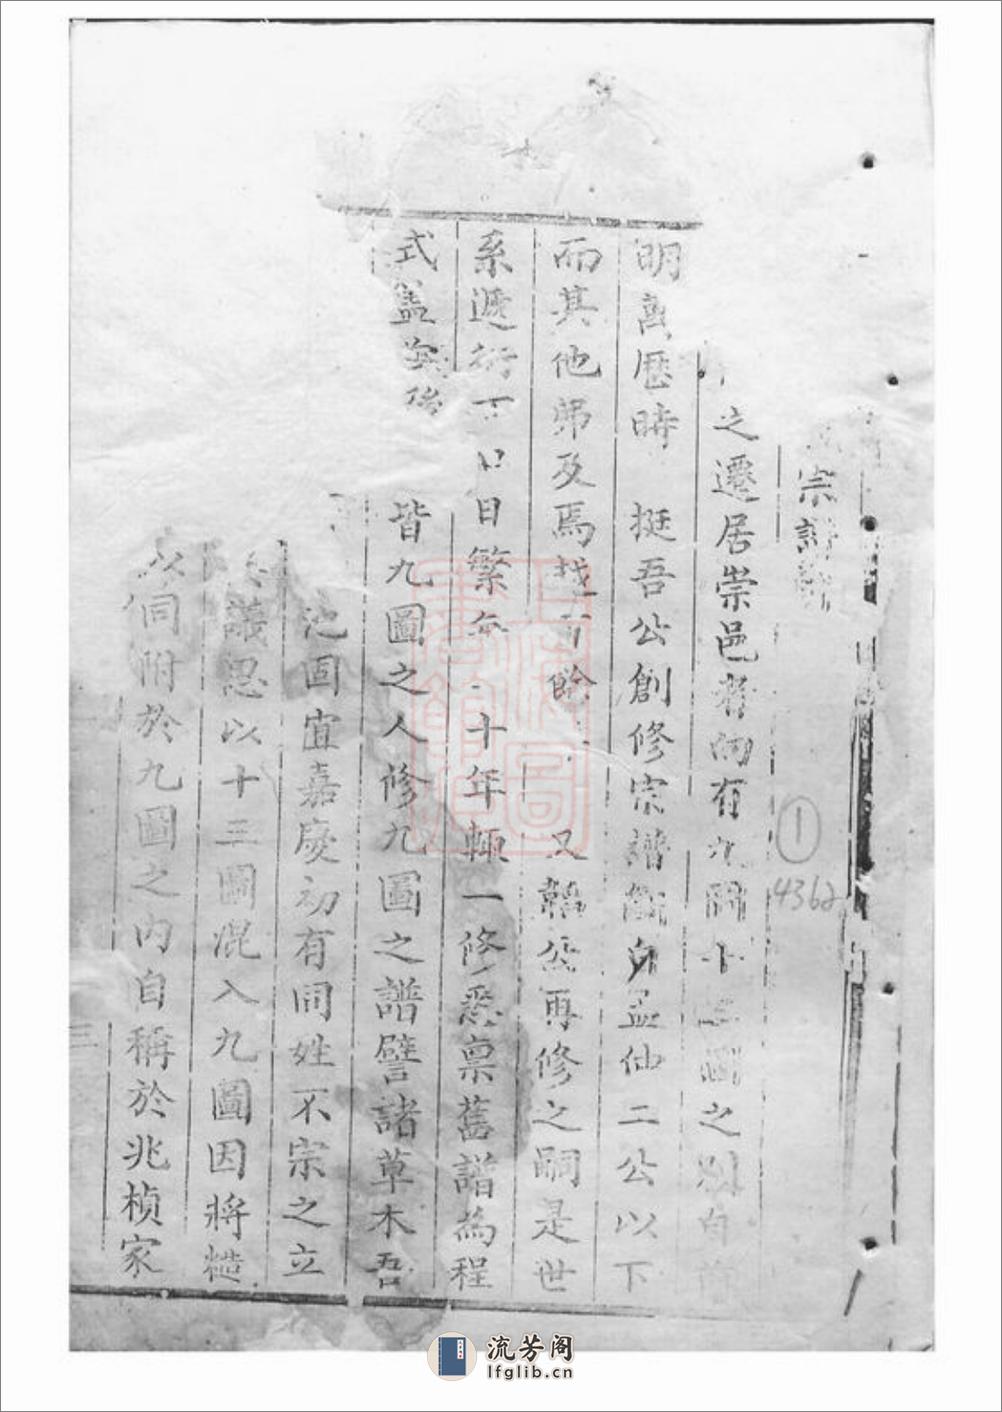 宗譜
之遷居崇邑者向有九圖十三圖之別自前
明萬歷時 挺吾公創修宗譜斷自孟仙二公以下
而其他弗及焉越百餘 又 公再修之嗣是世
系遞衍丁口日繁 十年輒一修悉稟舊譜為程
式蓋 後 皆九圖之人修九圖之譜譬諸草木吾
固宜嘉慶初有同姓不宗之立
議思以十三圖混入九圖因將
以同附於九圖之內自稱於兆楨家
三
1
4362
上海圖書館藏
流芳阁
lfglib.cn